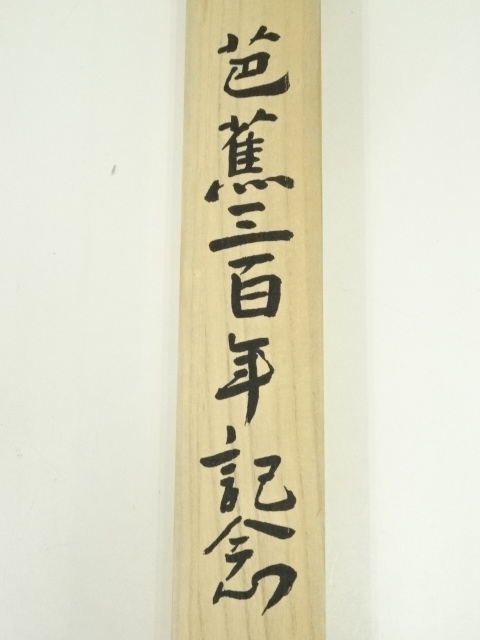 芭蕉三百年記念